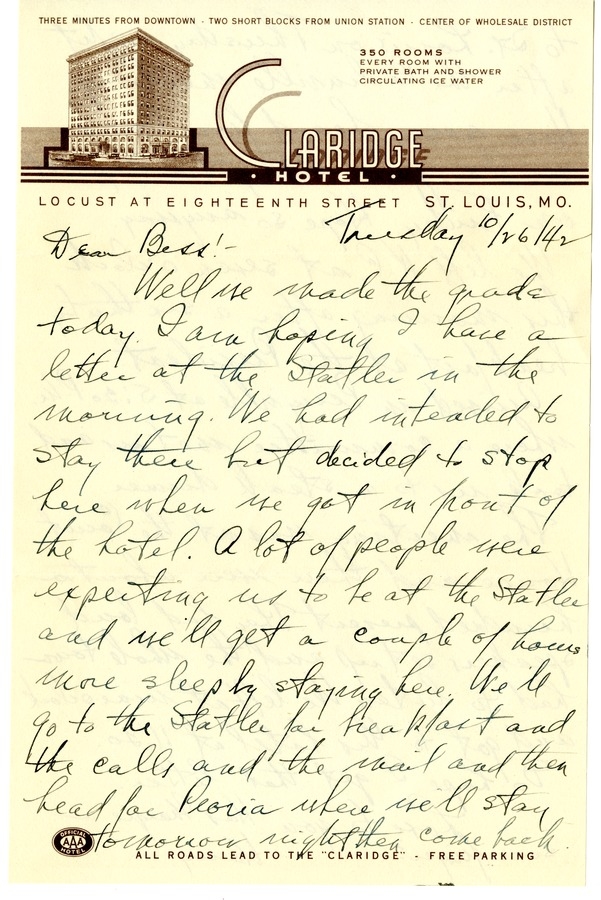 THREE MINUTES FROM DOWNTOWN · TWO SHORT BLOCKS FROM UNION STATION · CENTER OF WHOLESALE DISTRICT
350 ROOMS
EVERY ROOM WITH
PRIVATE BATH AND SHOWER
CIRCULATING ICE WATER
CLARIDGE
· HOTEL ·
LOCUST AT EIGHTEENTH STREET ST. LOUIS, MO.
Tuesday 10/26/42
Dear Bess:-
Well we made the grade
today. I am hoping I have a
letter at the Statler in the
morning. We had intended to
stay there but decided to stop
here when we got in front of
the hotel. A lot of people were
expecting us to be at the Statler
and we'll get a couple of hours
more sleep by staying here. We'll
go to the Statler for breakfast and
the calls and the mail and then
head for Peoria where we'll stay
tomorrow night then come back.
OFFICIAL
AAA
HOTEL
ALL ROADS LEAD TO THE "CLARIDGE" - FREE PARKING